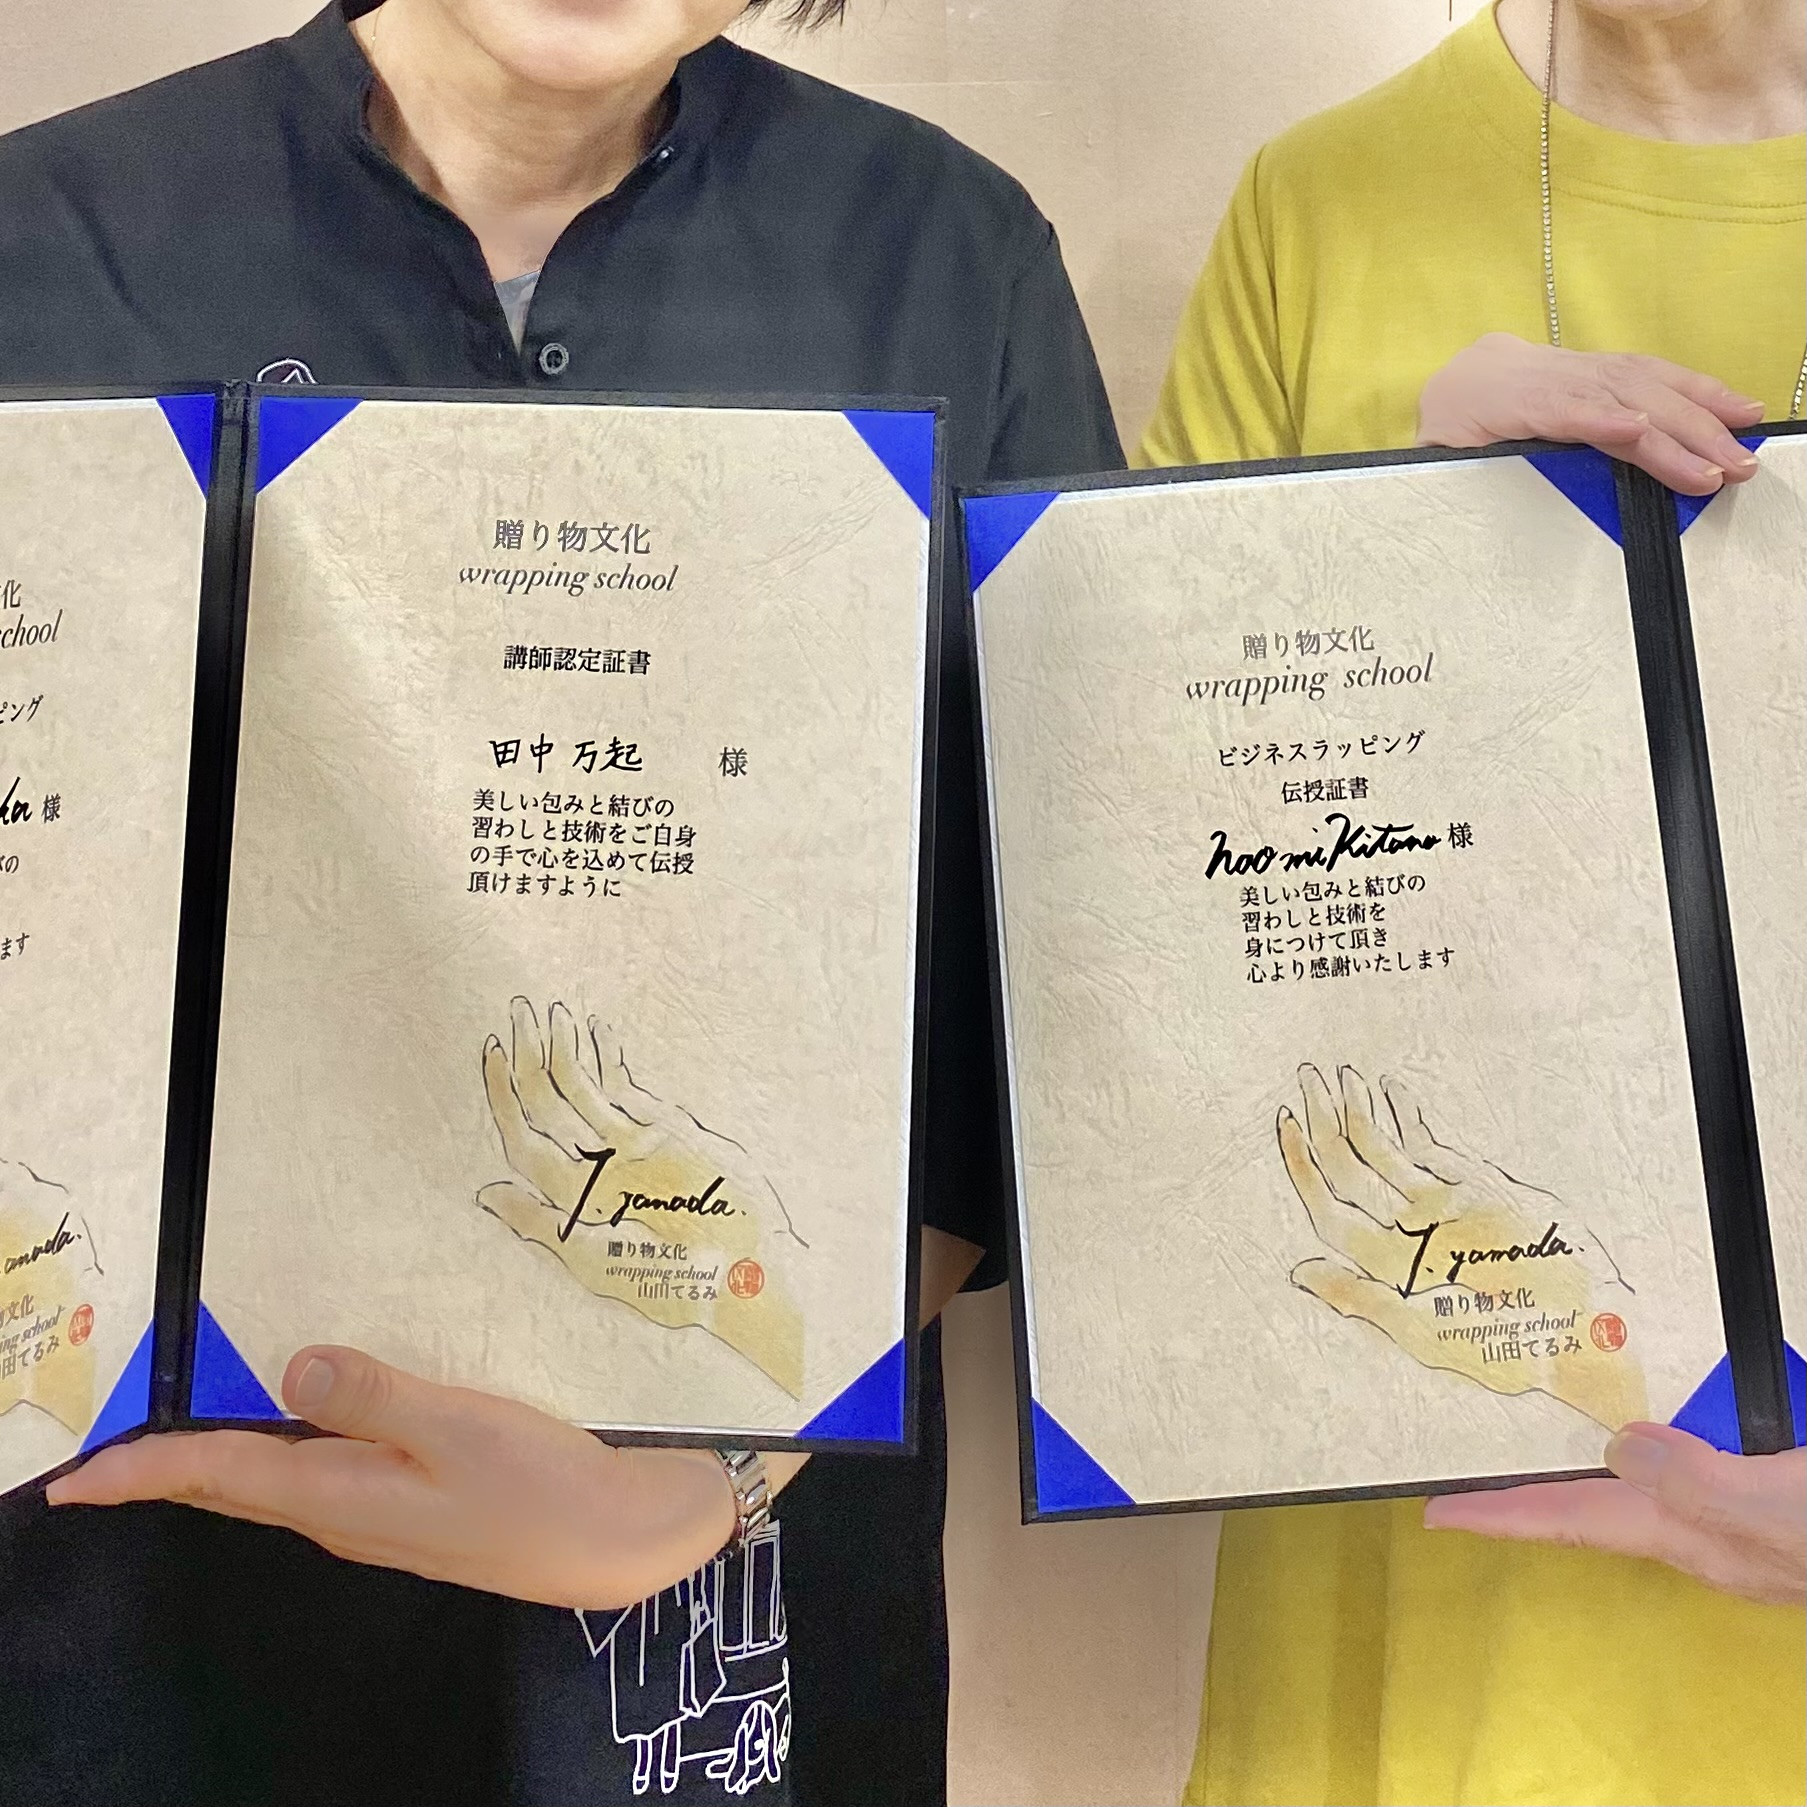 化
school
ピング
様
の
ます
anada.
物文化
ping school
山田てるみ
贈り物文化
wrapping school
講師認定証書
田中 万起 様
美しい包みと結びの
習わしと技術をご自身
の手で心を込めて伝授
頂けますように
T. yamada.
贈り物文化
wrapping school
山田てるみ
贈り物文化
wrapping school
ビジネスラッピング
伝授証書
Naomi Kitano 様
美しい包みと結びの
習わしと技術を
身につけて頂き
心より感謝いたします
T. yamada.
贈り物文化
wrapping school
山田てるみ